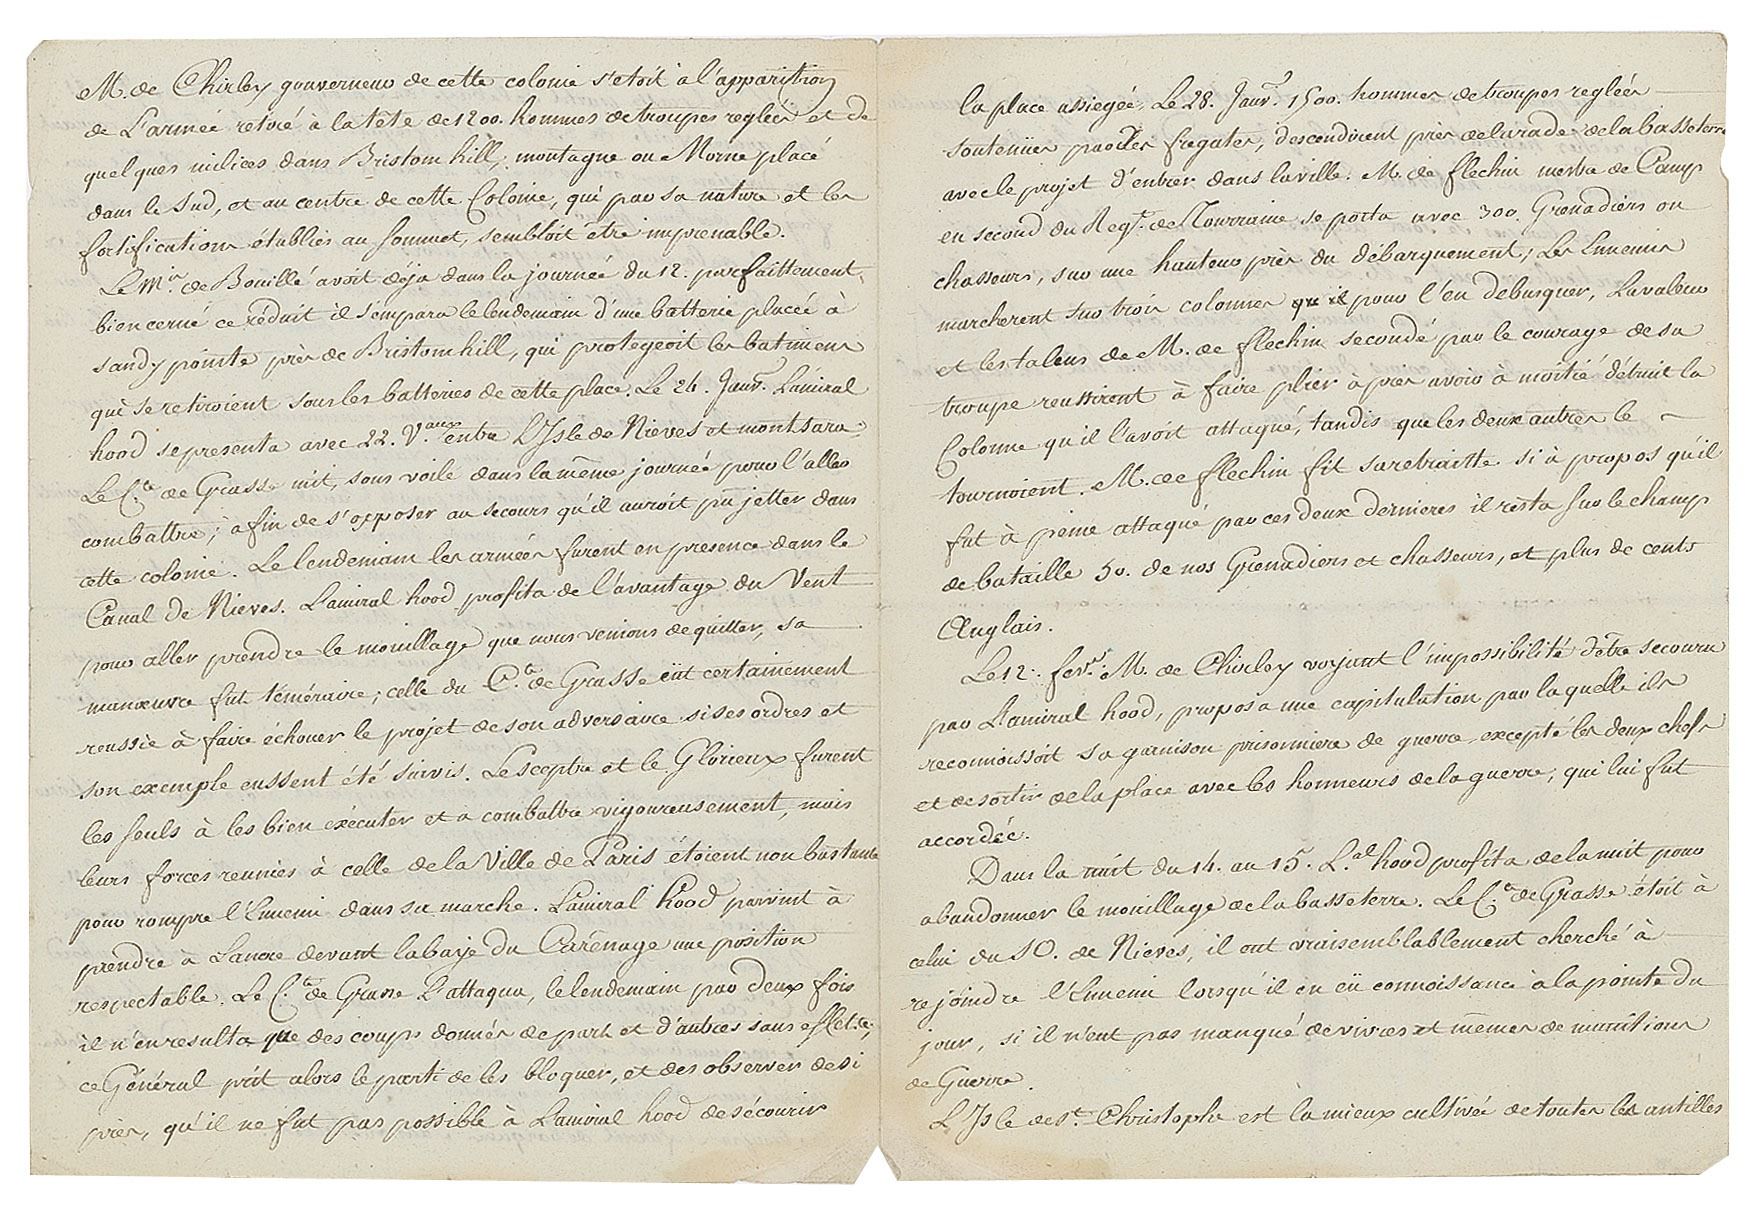 M. de Chirley gouverneur de cette colonie s'etoit à l'apparition
de L'armée retiré à la tête de 1200. hommes de troupes reglées et de
quelques milices dans Bristom hill, montagne ou Morne placé
dans le Sud, et au centre de cette Colonie, qui par sa nature et les
fortifications établies au sommet, sembloit être imprenable.
Le Mis. de Bouillé avoit déja dans la journée du 12. parfaittement
bien cerné ce réduit il s'empara le lendemain d'une batterie placée à
sandy pointe près de Bristom hill, qui protegeoit les batimens
qui se retiroient sous les batteries de cette place. Le 24. Janvr. L'amiral
hood se presenta avec 22. Vaux. entre L'Isle de Nieves et montsara.
Le Cte. de Grasse mit, sous voile dans la même journée pour l'aller
combattre; à fin de s'opposer au secours qu'il auroit pu jetter dans
cette colonie. Le lendemain les armées furent en presence dans le
Canal de Nieves. L'amiral hood profita de l'avantage du Vent
pour aller prendre le mouillage que nous venions de quitter, sa
manœuvre fut téméraire; celle du Cte. de Grasse eût certainement
reussie à faire échouer le projet de son adversaire si ses ordres et
son exemple eussent été suivis. Le sceptre et le Glorieux furent
les seuls à les bien exécuter et a combattre vigoureusement, mais
leurs forces reunies à celle de la Ville de Paris étoient non bastante
pour rompre l'Ennemi dans sa marche. L'amiral hood parvint à
prendre à L'ancre devant la baye du Carénage une position
respectable. Le Cte. de Grasse L'attaqua, le lendemain par deux fois
il n'en resulta que des coups donnés de part et d'autres sans effet;
ce Général prit alors le parti de les bloquer, et des observer de si
près, qu'il ne fut pas possible à L'amiral hood de sécourir
la place assiegée. Le 28. Janvr. 1500. hommes de troupes reglées
soutenues par des fregates, descendirent près de la rade de la basse terre
avec le projet d'entrer dans la ville. M. de flechin mestre de Camp
en second du Regt. de Tourraine se porta avec 300. Grenadiers ou
chasseurs, sur une hauteur près du débarquement; Les Ennemis
marcherent sur trois colonnes pour l'en debusquer, La valeur
et les talens de M. de flechin secondé par le courage de sa
troupe reussiront à faire plier à près avoir à moitié détruit la
Colonne qu'il l'avoit attaqué, tandis que les deux autres le
tournoient. M. de flechin fit sa retraitte si à propos qu'il
fut à peine attaqué par ces deux dernieres il resta sur le champ
de bataille 50. de nos Grenadiers et chasseurs, et plus de cents
Anglais.
Le 12. fevr. M. de Chirley voyant l'impossibilité d'être secouru
par L'amiral hood, proposa une capitulation par laquelle il
reconnoissoit sa garnison prisonniere de guerre, excepté les deux chefs
et de sortir de la place avec les honneurs de la guerre; qui lui fut
accordée.
Dans la nuit du 14. au 15. L'al. hood profita de la nuit pour
abandonner le mouillage de la basse terre. Le Cte. de Grasse étoit à
celui du SO. de Nieves, il ont vraisemblablement cherché à
rejoindre l'Ennemi lorsqu'il en eü connoissance à la pointe du
jour, si il n'eut pas manqué de vivres et mêmes de munitions
de Guerre.
L'Isle de St. Christophe est la mieux cultivée de toutes les antilles